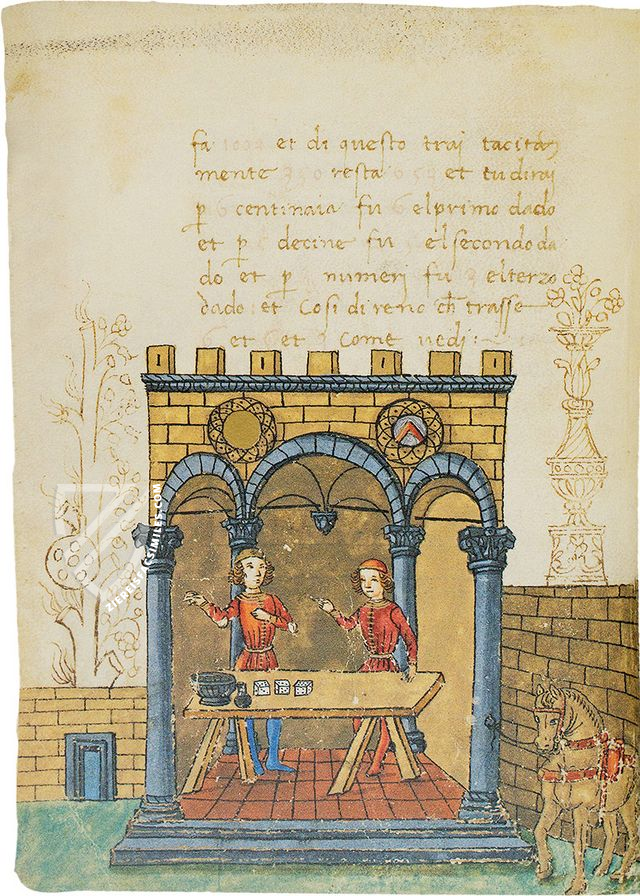 fa 1002 et di questo trai tacita
mente 350 resta 652 et tu dirai
p centinaia fu 6 el primo dado
et p decine fu 5 el secondo da
do et p numeri fu 2 el terzo
dado: et cosi direno ch trasse
6 et 5 et 2 come vedi:
ZIEREISFACSIMILES.COM